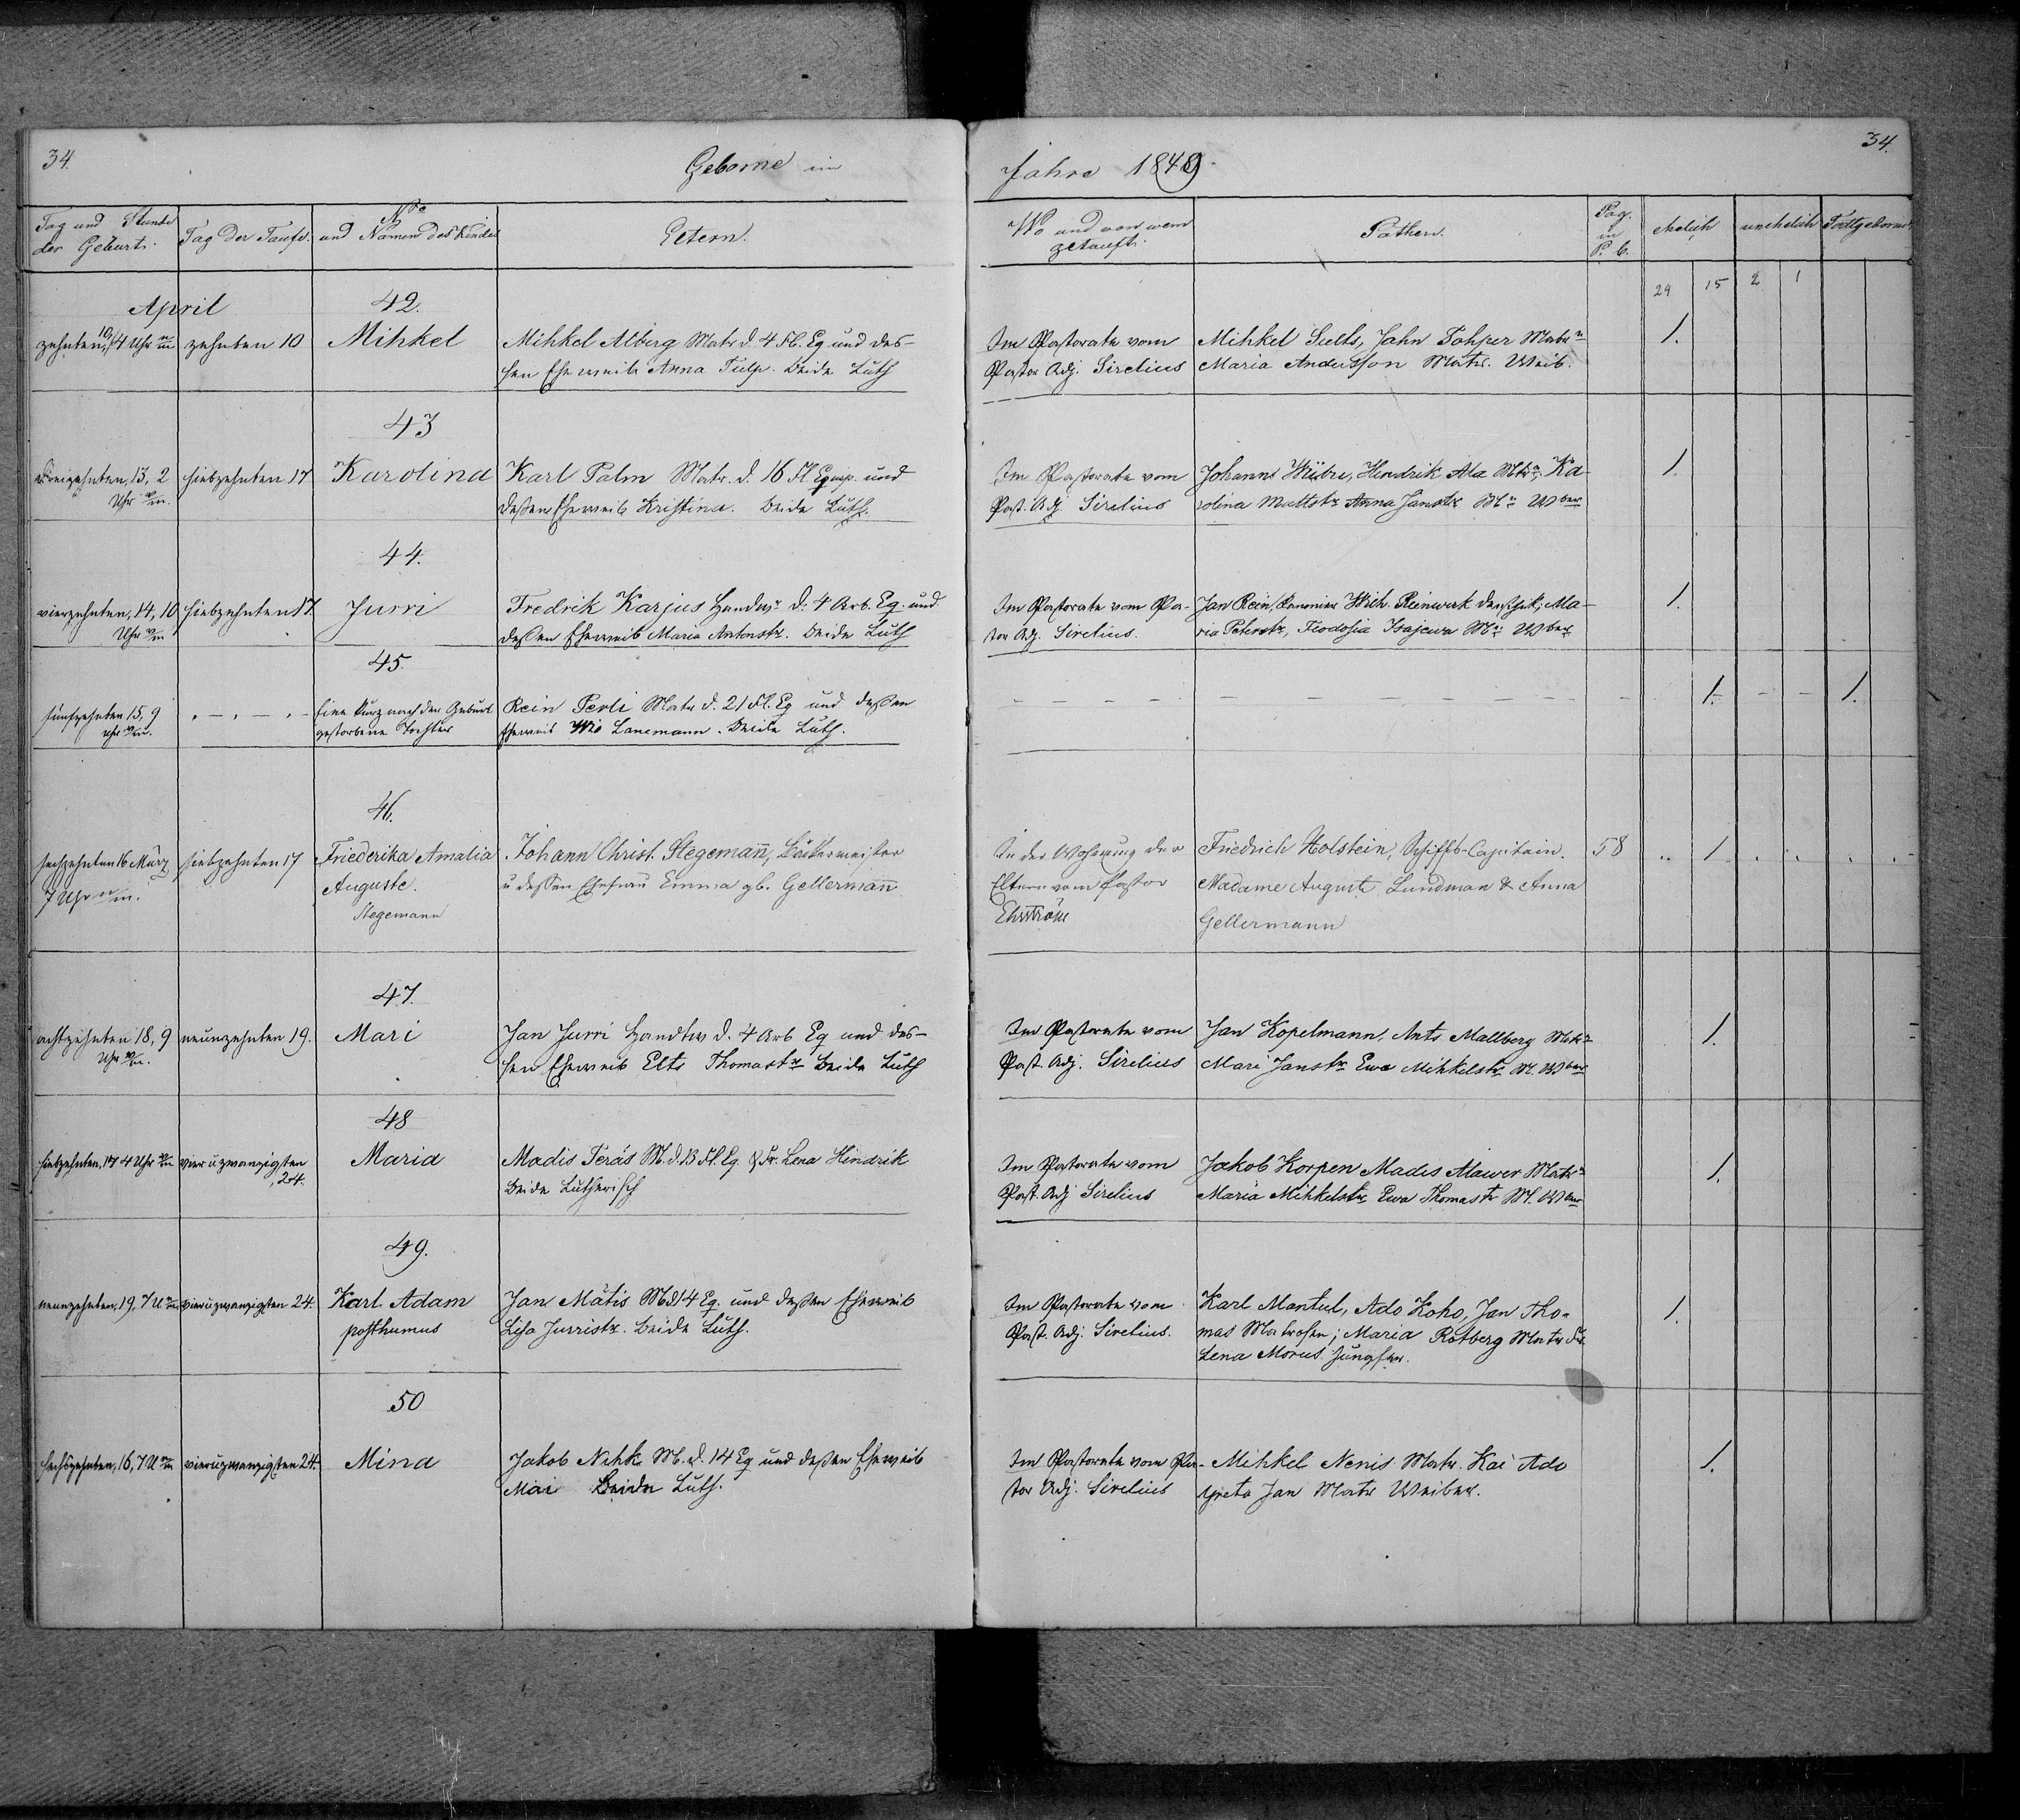 34.
Geborne im
Jahre 1849.
34.
Tag und Stunde
der Geburt.
Tag der Taufe.
No
und Namen des Kindes
Eltern.
Wo und von wem
getauft.
Pathen.
Pag.
in
P. C.
ehelich
unehelich
Todtgeborne
29 15 2 1
April
42.
zehnten 10, 4 Uhr
zehnten 10
Mihkel
Mihkel Alberg Matr. d. 4 Fl. Eq und des-
sen Eheweib Anna Tulp. Beide Luth
Im Pastorate vom
Pastor Adj. Sirelius
Mihkel Suts, Jahn Tohper Matr
Maria Andersson Matr. Weib.
1.
43
dreizehnten, 13, 2
Uhr
siebzehnten 17
Karolina
Karl Palm Matr. d. 16 Fl. Equip. und
deßen Eheweib Kristina. Beide Luth.
Im Pastorate vom
Past. Adj. Sirelius
Johann Hübre, Hendrik Ala Mtr, Ka-
rolina Mattstr Anna Janstr M Wber
1.
44.
vierzehnten, 14, 10
Uhr
siebzehnten 17.
Jurri
Fredrik Karjus Handw d. 4 Arb. Eq. und
deßen Eheweib Maria Antonstr. Beide Luth
Im Pastorate vom Pa-
tor Adj. Sirelius.
Jan Rein, Hich. Reinwerk; Ma-
ria Peterstr, Feodosia Isajewa M Wber
1.
45.
fünfzehnten 15, 9
Uhr
Eine kurz nach der Geburt
gestorbene Tochter
Rein Perli Matr d. 21 Fl. Eq und deßen
Eheweib Wio Lanemann. Beide Luth.
1. 1.
46.
sechzehnten 16 März
7 Uhr
siebzehnten 17
Friederika Amalia
Auguste.
Stegemann
Johann Christ. Stegemann,
u deßen Ehefrau Emma gb. Gellermann
In der Wohnung der
Eltern vom Pastor
Ehrström
Friedrich Holstein, Schiffs-Capitain.
Madame Auguste Lundman & Anna
Gellermann
58
1
47.
achtzehnten 18, 9
Uhr
neunzehnten 19.
Mari
Jan Jurri Handw d. 4 Arb Eq und des-
sen Eheweib Elts Thomastr Beide Luth
Im Pastorate vom
Past. Adj. Sirelius
Jan Kopelmann, Ants Mallberg Matr
Mari Janstr Ewa Mihkelstr M. Wber
1.
48
siebzehnten, 17 4 Uhr
vier u zwanzigsten
24.
Maria
Madis Teräs M. d. 13 Fl. Eq. & Fr. Lena Hindrik
Beide Lutherisch
Im Pastorate vom
Past. Adj Sirelius
Jakob Korpen Madis Alawer Matr
Maria Mihkelstr Ewa Thomastr M. Wber
1.
49.
neunzehnten, 19, 7 U
vieruzwanzigsten 24.
Karl Adam
posthumus
Jan Mätis M d 14 Eq. und deßen Eheweib
Lisa Jurristr. Beide Luth.
Im Pastorate vom
Past. Adj. Sirelius.
Karl Mantul, Ado Koho, Jan Tho-
mas Matrosen; Maria Rotberg Matr Fr
Lena Morus Jungfer.
1.
50
sechszehnten, 16, 7 U
vieruzwanzigsten 24.
Mina
Jakob Nihk M. d. 14 Eq und deßen Eheweib
Mai Beide Luth.
Im Pastorate vom Pas-
tor Adj. Sirelius
Mihkel Nenis Matr. Kai Ado
Greta Jan Matr Weiber.
1.